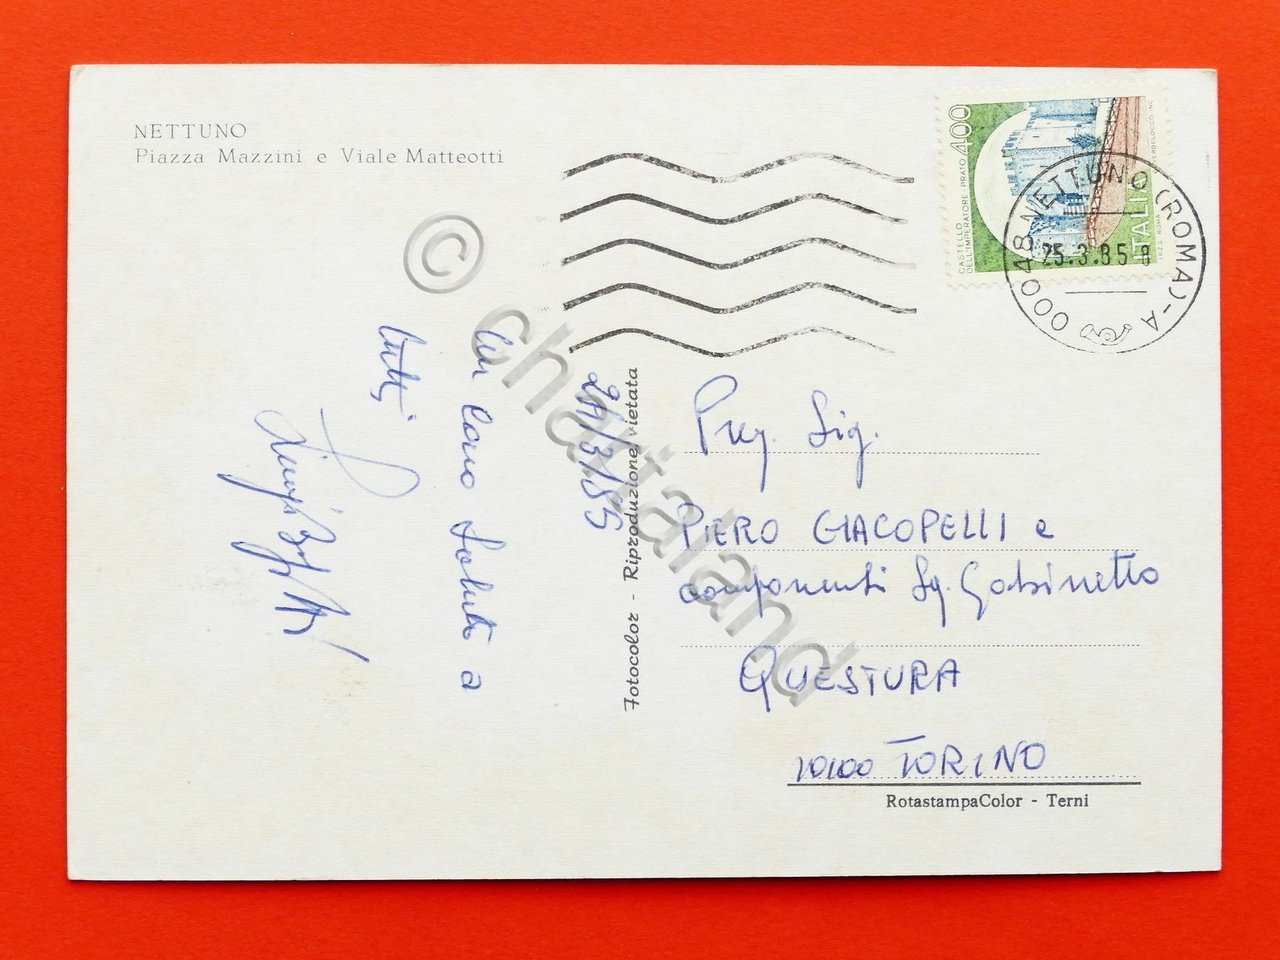 NETTUNO
Piazza Mazzini e Viale Matteotti
400
CASTELLO
DELL'IMPERATORE - PRATO
ITALIA
I.P.Z.S. ROMA
00048 NETTUNO (ROMA) - A
25.3.85-8
© chartaland
24/3/85
Un caro saluto a
tutti
Luigi
Fotocolor - Riproduzione vietata
Preg. Sig.
PIERO GIACOPELLI e
componenti Sq. Gabinetto
QUESTURA
10100 TORINO
RotastampaColor - Terni